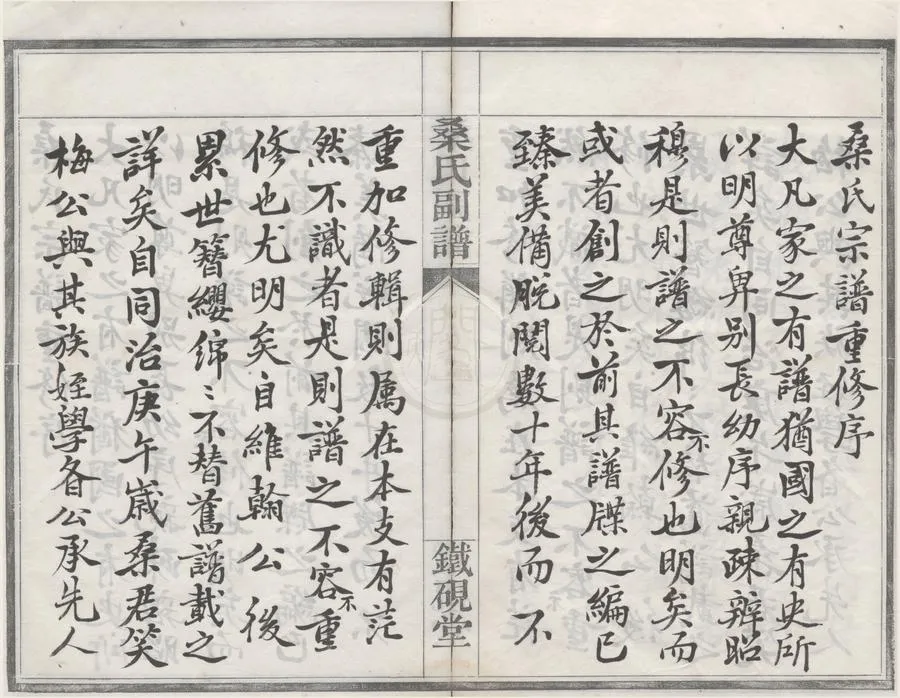 桑氏宗譜重修序
大凡家之有譜猶國之有史所
以明尊卑别長幼序親疎辨昭
穆是則譜之不容不修也明矣而
或者創之於前其譜牒之編已
臻美備脫閱數十年後而不
桑氏副譜
鐵硯堂
重加修輯則属在本支有茫
然不識者是則譜之不容不重
修也尤明矣自維翰公後
累世簪纓綿〻不替舊譜載之
詳矣自同治庚午歲桑君笑
梅公與其族姪學各公承先人